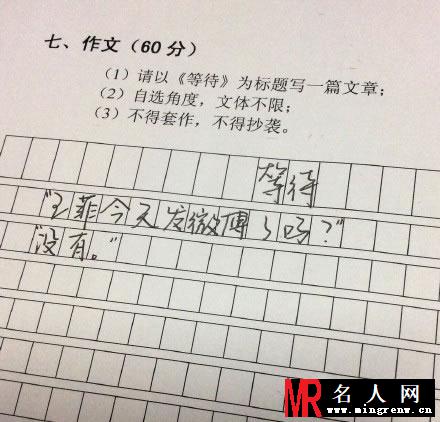 七、作文（60分）
（1）请以《等待》为标题写一篇文章；
（2）自选角度，文体不限；
（3）不得套作，不得抄袭。
等待
“王菲今天发微博了吗？”
“没有。”
MR 名人网
www.mingrenw.cn